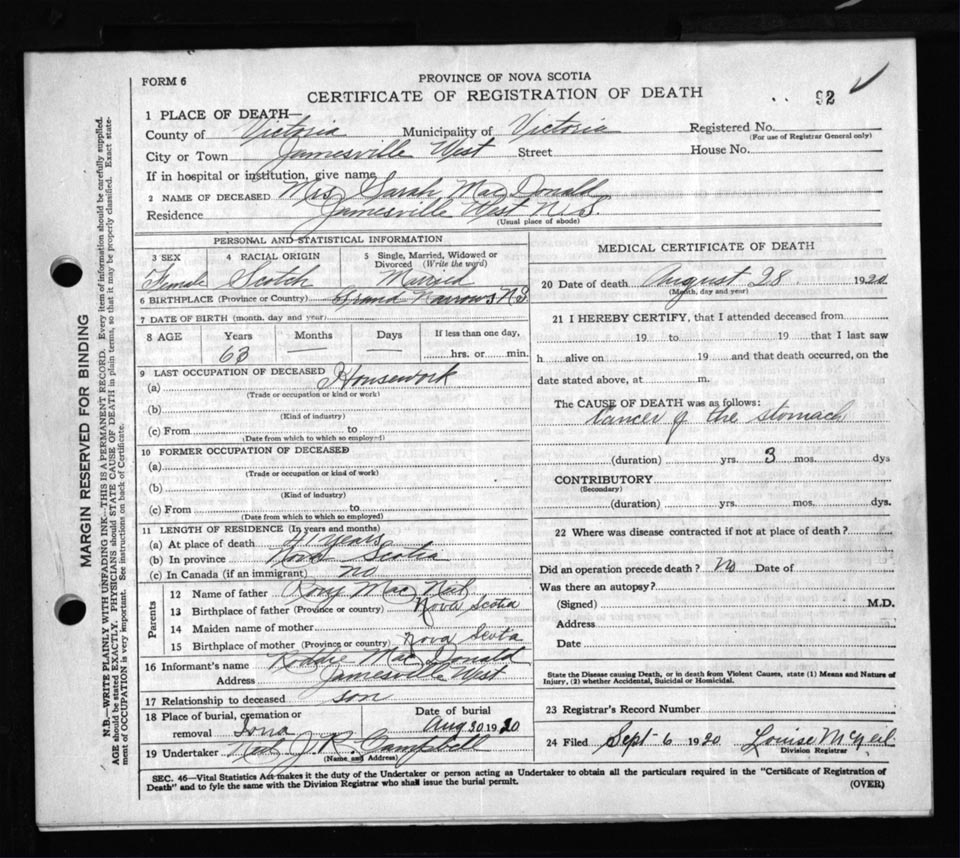 FORM 6
PROVINCE OF NOVA SCOTIA
CERTIFICATE OF REGISTRATION OF DEATH
92
1 PLACE OF DEATH—
County of Victoria Municipality of Victoria Registered No.
(For use of Registrar General only)
City or Town Jamesville West Street House No.
If in hospital or institution, give name
2 NAME OF DECEASED Mrs Sarah MacDonald
Residence Jamesville West N.S.
(Usual place of abode)
PERSONAL AND STATISTICAL INFORMATION
3 SEX 4 RACIAL ORIGIN 5 Single, Married, Widowed or Divorced (Write the word)
Female Scotch Married
6 BIRTHPLACE (Province or Country) Grand Narrows N.S
7 DATE OF BIRTH (month, day and year)
8 AGE Years Months Days If less than one day,
63 — — hrs. or min.
9 LAST OCCUPATION OF DECEASED
(a) Housework
(Trade or occupation or kind or work)
(b)
(Kind of industry)
(c) From to
(Date from which to which so employed)
10 FORMER OCCUPATION OF DECEASED
(a)
(Trade or occupation or kind of work)
(b)
(Kind of industry)
(c) From to
(Date from which to which so employed)
11 LENGTH OF RESIDENCE (In years and months)
(a) At place of death 41 years
(b) In province Nova Scotia
(c) In Canada (if an immigrant) no
Parents
12 Name of father Rory MacNeil
13 Birthplace of father (Province or country) Nova Scotia
14 Maiden name of mother
15 Birthplace of mother (Province or country) Nova Scota
16 Informant's name Roddie MacDonald
Address Jamesville West
17 Relationship to deceased son
18 Place of burial, cremation or removal Iona Date of burial Aug 30 1920
19 Undertaker J. R. Campbell
(Name and Address)
MEDICAL CERTIFICATE OF DEATH
20 Date of death August 28 1920
(Month, day and year)
21 I HEREBY CERTIFY, that I attended deceased from
19 to 19 that I last saw
h alive on 19 and that death occurred, on the
date stated above, at m.
The CAUSE OF DEATH was as follows:
Cancer of the stomach
(duration) yrs. 3 mos. dys
CONTRIBUTORY
(Secondary)
(duration) yrs. mos. dys.
22 Where was disease contracted if not at place of death?
Did an operation precede death? No Date of
Was there an autopsy?
(Signed) M.D.
Address
Date
State the Disease causing Death, or in death from Violent Causes, state (1) Means and Nature of
Injury, (2) whether Accidental, Suicidal or Homicidal.
23 Registrar's Record Number
24 Filed Sept 6 1920 Louise McNeil
Division Registrar
SEC. 46—Vital Statistics Act makes it the duty of the Undertaker or person acting as Undertaker to obtain all the particulars required in the "Certificate of Registration of
Death" and to fyle the same with the Division Registrar who shall issue the burial permit.
(OVER)
MARGIN RESERVED FOR BINDING
N.B.—WRITE PLAINLY WITH UNFADING INK—THIS IS A PERMANENT RECORD. Every item of information should be carefully supplied.
AGE should be stated EXACTLY. PHYSICIANS should STATE CAUSE OF DEATH in plain terms, so that it may be properly classified. Exact state-
ment of OCCUPATION is very important. See instructions on back of Certificate.